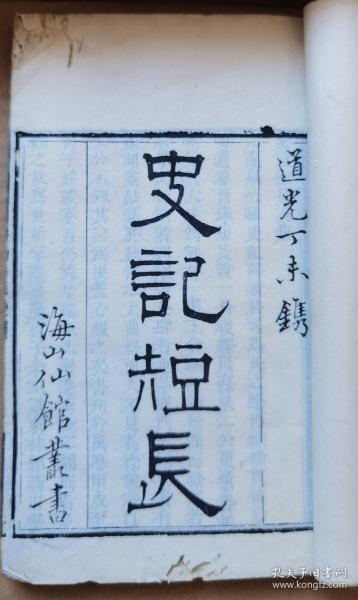 道光丁未鐫
史記短長
海山仙館叢書
孔夫子旧书网